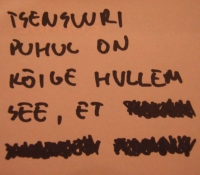 TSENSUURI
PUHUL ON
KÕIGE HULLEM
SEE, ET